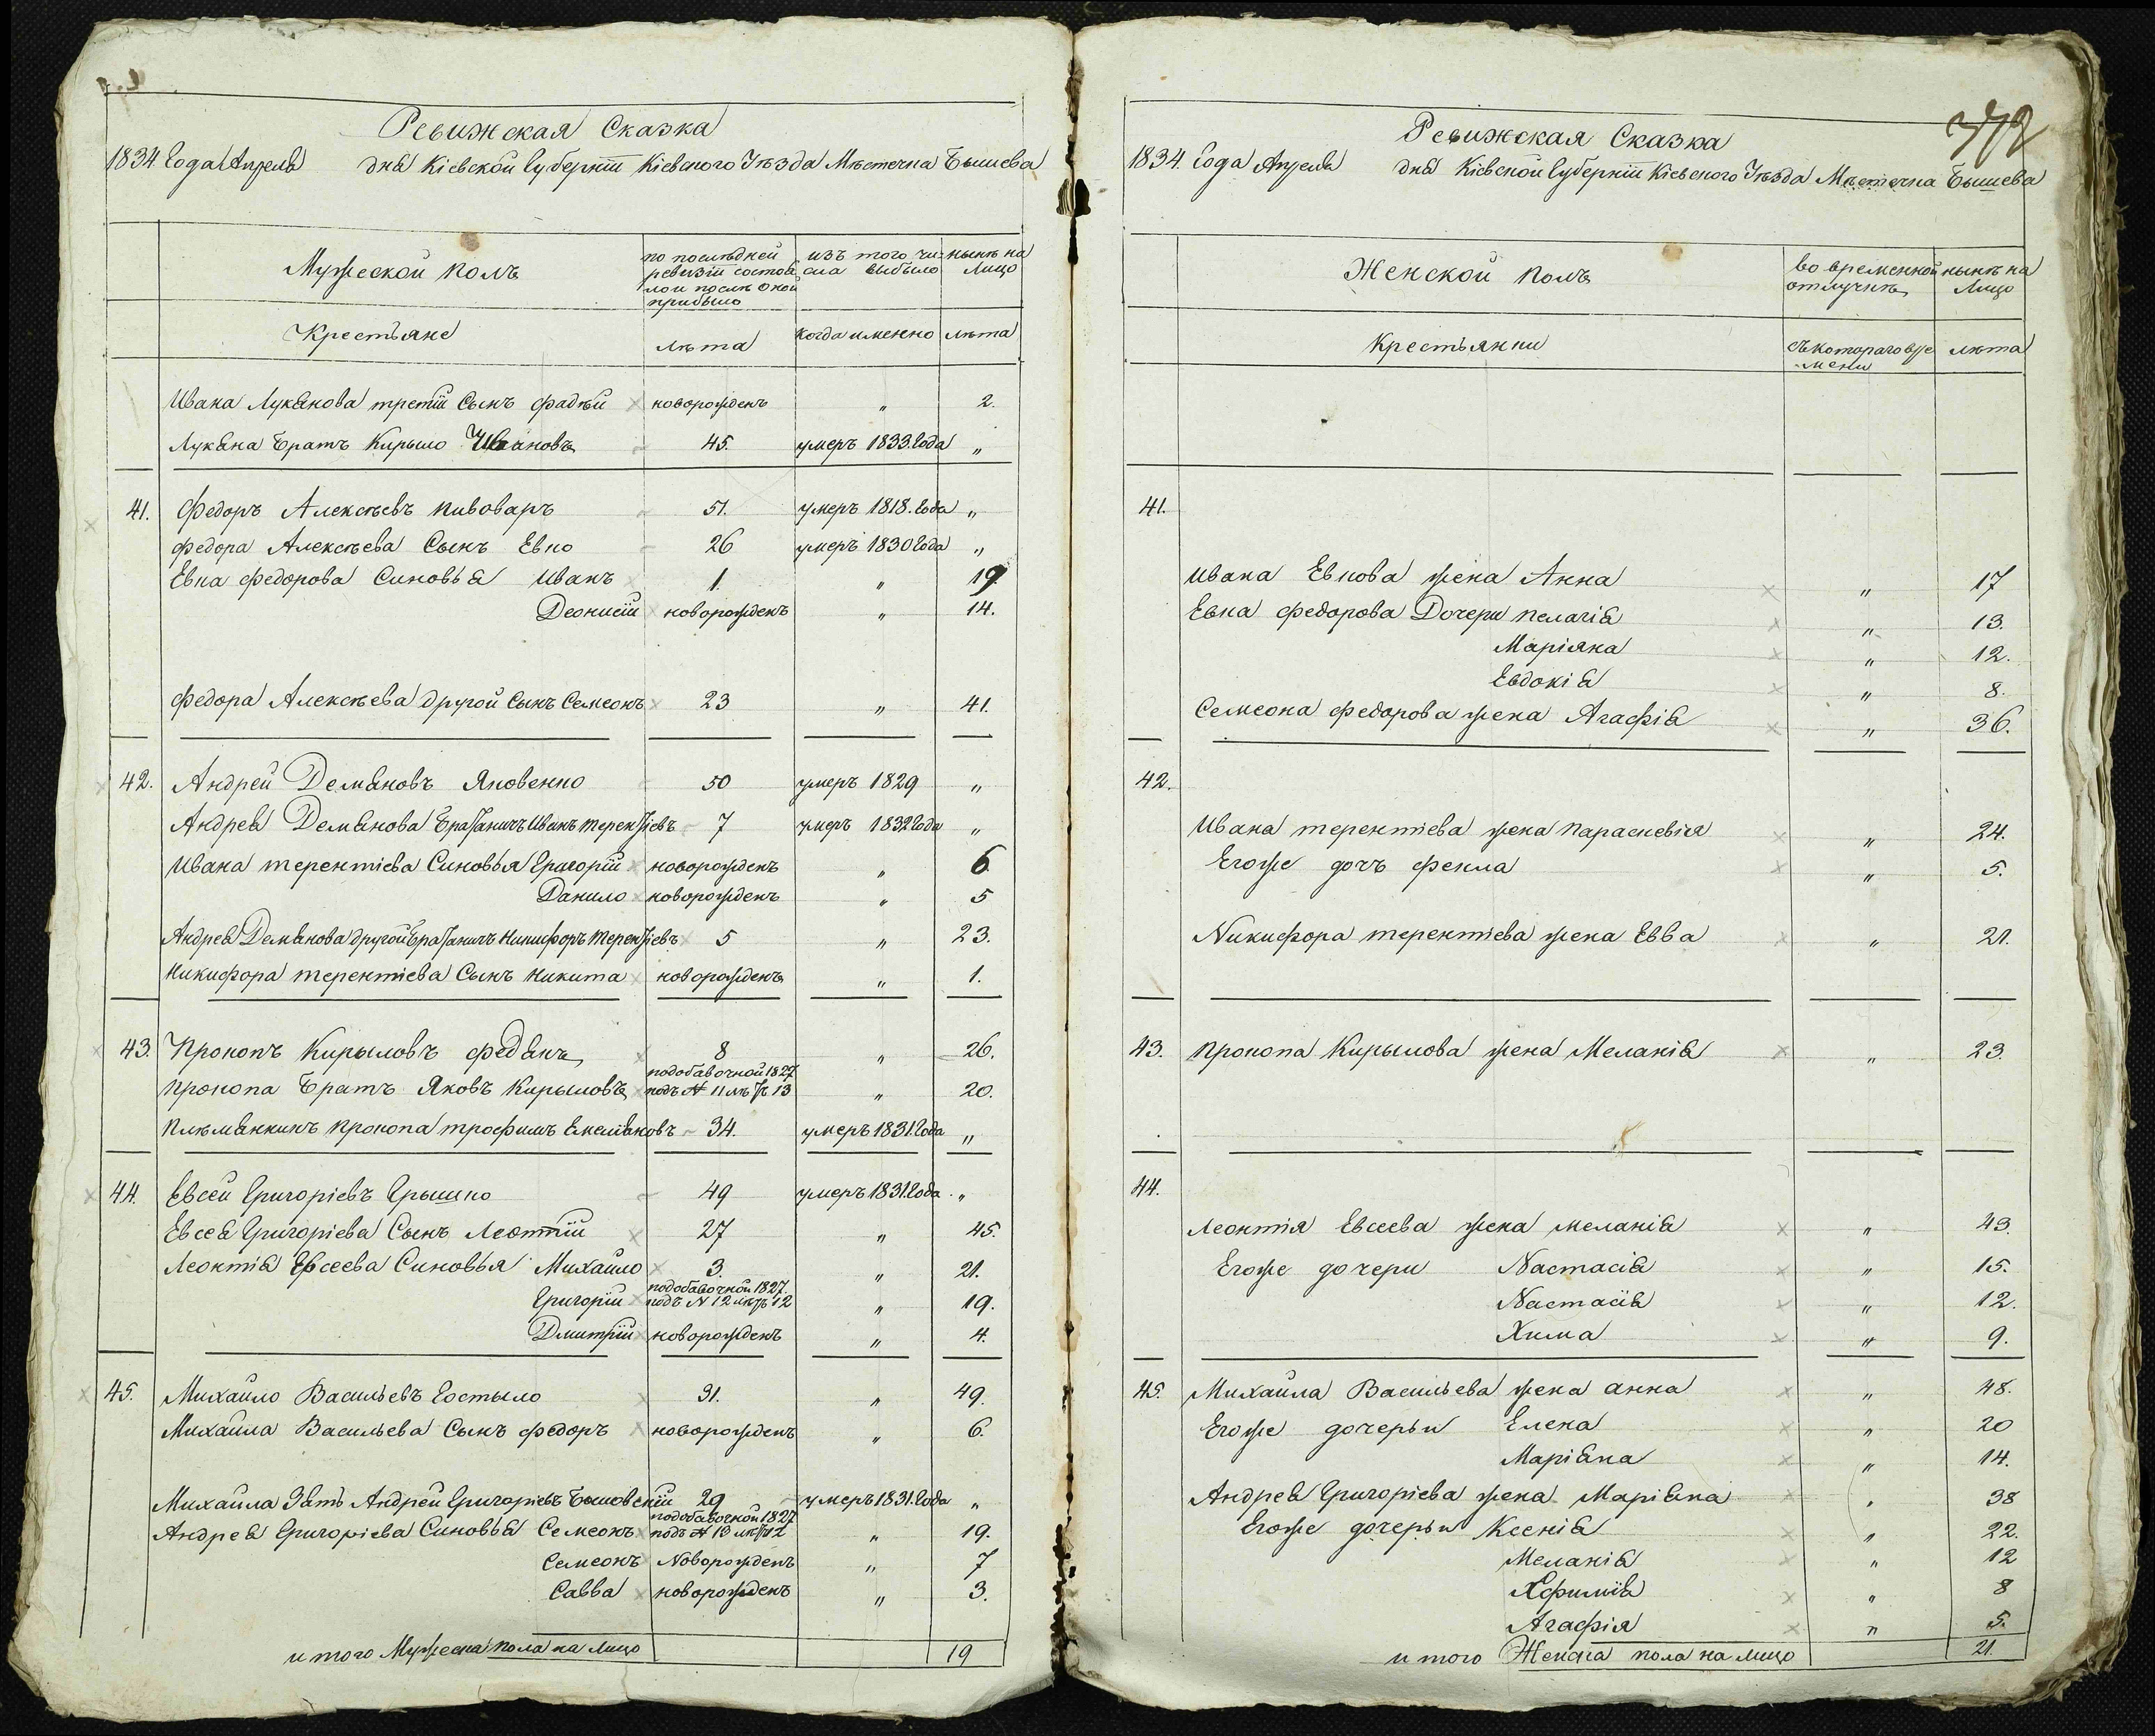 Ревижская Сказка
1834 Года Апреля дня Кіевской Губерніи Кіевского Уѣзда Мѣстечка Бышева
Мужеской полъ
по послѣдней ревизіи состояло и послѣ оной прибыло
изъ того числа выбыло
нынѣ на лицо
Крестьяне
лѣта
когда именно
лѣта
Ивана Лукянова третій Сынъ Фадѣй новорожденъ " 2.
Лукяна Братъ Кирыло Ивановъ 45. умеръ 1833 Года "
41. Федоръ Алексѣевъ Пивоваръ 51. умеръ 1818. Года "
Федора Алексѣева Сынъ Евко 26 умеръ 1830 Года "
Евка Федорова Синовья Иванъ 1. " 19
Деонисій новорожденъ " 14.
Федора Алексѣева другой Сынъ Семеонъ 23 " 41.
42. Андрей Демяновъ Яковенко 50 умеръ 1829 "
Андрея Демянова Братаничъ Иванъ Терентіевъ 7 умеръ 1832 Года "
Ивана Терентіева Синовья Григорій новорожденъ " 6
Данило новорожденъ " 5
Андрея Демянова другой Братаничъ Никифоръ Терентіевъ 5 " 23.
Никифора Терентіева Сынъ Никита новорожденъ " 1.
43. Прокопъ Кирыловъ Федянъ 8 " 26.
подобавочной 1827
Прокопа Братъ Яковъ Кирыловъ подъ № 11 лѣтъ 13 " 20.
Плѣмянникъ Прокопа Трофимъ Емеліяновъ 34. умеръ 1831. Года "
44. Евсей Григоріевъ Грышко 49 умеръ 1831. Года "
Евсея Григоріева Сынъ Леонтій 27 " 45.
Леонтія Евсеева Синовья Михайло 3. " 21.
подобавочной 1827.
Григорій подъ № 12 лѣтъ 12 " 19.
Дмитрій новорожденъ " 4.
45. Михайло Васильевъ Гостыло 31. " 49.
Михайла Васильева Сынъ Федоръ новорожденъ " 6.
Михайла Зять Андрей Григоріевъ Быковскій 29 умеръ 1831. Года "
подобавочной 1827
Андрея Григоріева Синовья Семеонъ подъ № 13 лѣтъ 12 " 19.
Семеонъ Новорожденъ " 7
Савва новорожденъ " 3.
итого Мужеска пола на лицо 19
Ревижская Сказка
1834. Года Апреля дня Кіевской Губерніи Кіевского Уѣзда Мѣстечка Бышева
Женской полъ
во временной отлучкѣ
нынѣ на лицо
Крестьянки
съ котораго времени
лѣта
41.
Ивана Евкова жена Анна " 17
Евка Федорова Дочери Пелагія " 13.
Маріяна " 12.
Евдокія " 8.
Семеона Федорова жена Агафія " 36.
42.
Ивана Терентіева жена Параскевія " 24.
Егоже дочь Фекла " 5.
Никифора Терентіева жена Евва " 21.
43. Прокопа Кирылова жена Меланія " 23.
44.
Леонтія Евсеева жена Меланія " 43.
Егоже дочери Настасія " 15.
Настасія " 12.
Хима " 9.
45. Михайла Васильева жена Анна " 48.
Егоже дочерьи Елена " 20
Маріяна " 14.
Андрея Григоріева жена Маріяна " 38
Егоже дочерьи Ксенія " 22.
Меланія " 12
Ефимія " 8
Агафія " 5.
итого Женска пола на лицо 21.